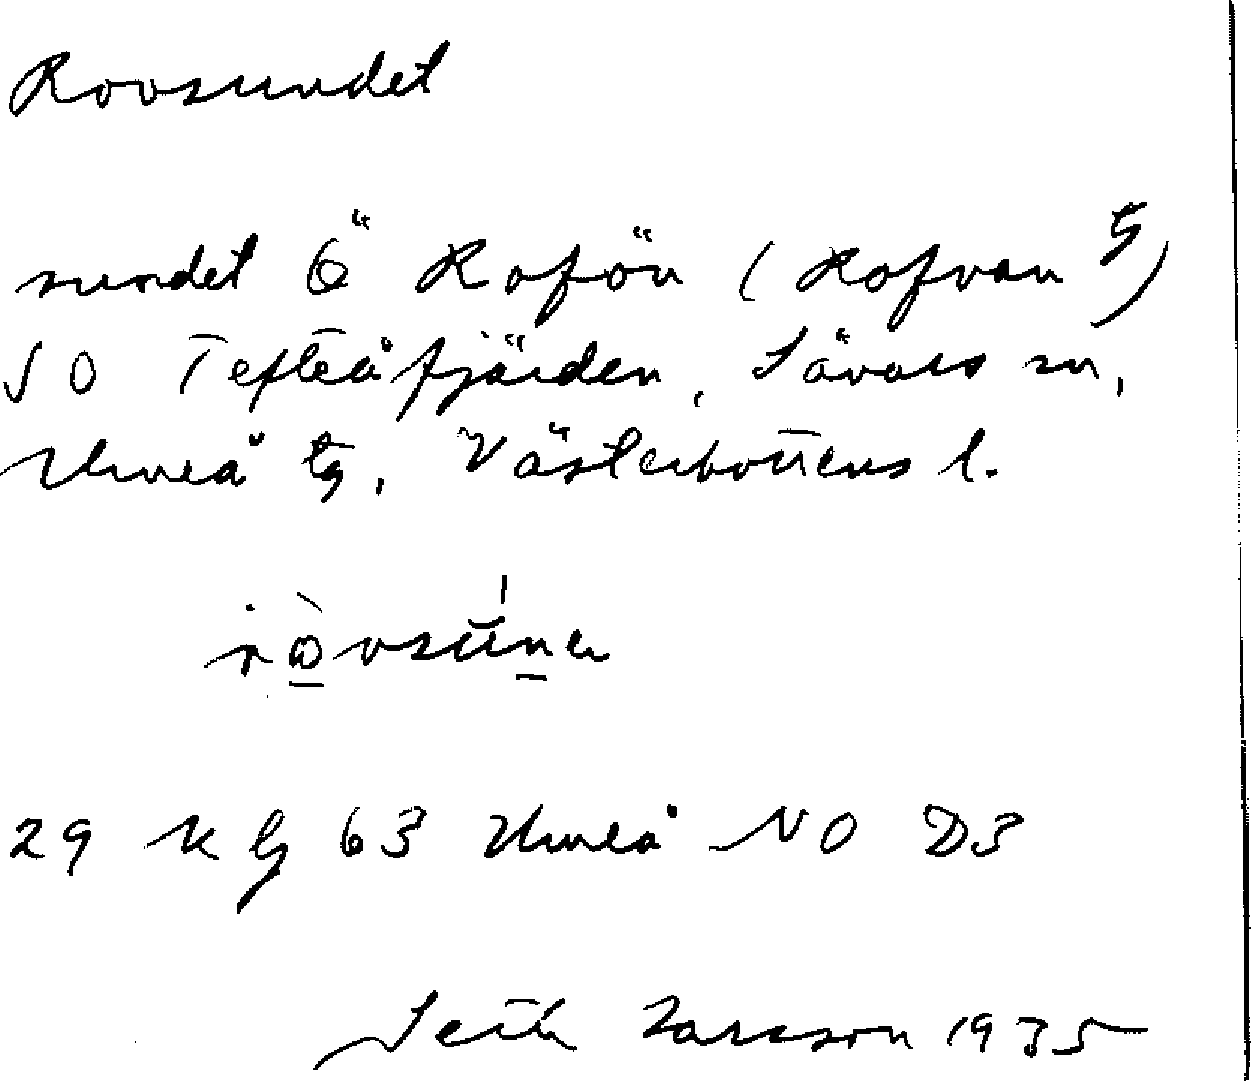 Rovsundet
sundet Ö Rofön (Rofvan 5)
SO Tefteåfjärden, Sävars sn,
Umeå tg, Västerbottens l.
29 Kg 63 Umeå NO D3
Seth Larsson 1935